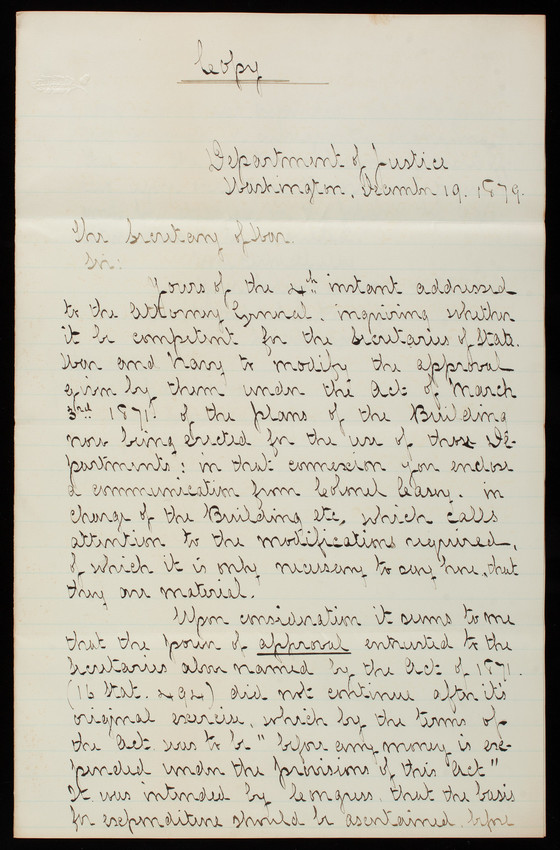 Copy
Department of Justice
Washington, December 19. 1879.
The Secretary of War.
Sir:
Yours of the 4th instant addressed
to the Attorney General. inquiring whether
it be competent for the Secretaries of State.
War and Navy to modify the approval
given by them under the Act of March
3rd 1871. of the plans of the Building
now being erected for the use of those De-
partments: in that connexion you enclose
a communication from Colonel Casey. in
charge of the Building etc, which calls
attention to the modifications required,
of which it is only necessary to say here, that
they are material.
Upon consideration it seems to me
that the power of approval entrusted to the
Secretaries above named by the Act of 1871.
(16 Stat. 494) did not continue after its
original exercise, which by the terms of
the Act was to be "before any money is ex-
pended under the provisions of this Act"
It was intended by Congress, that the basis
for expenditure should be ascertained before